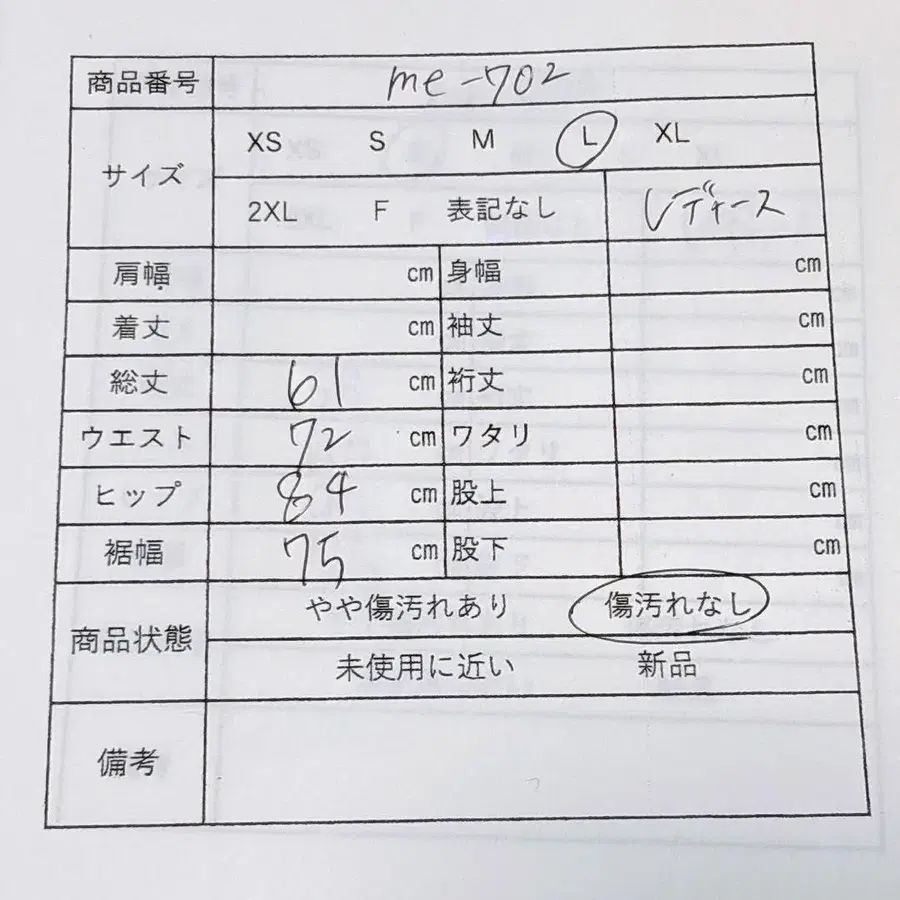 商品番号 me-702
サイズ XS S M L XL
2XL F 表記なし レディース
肩幅 cm 身幅 cm
着丈 cm 袖丈 cm
総丈 61 cm 裄丈 cm
ウエスト 72 cm ワタリ cm
ヒップ 84 cm 股上 cm
裾幅 75 cm 股下 cm
商品状態 やや傷汚れあり 傷汚れなし
未使用に近い 新品
備考